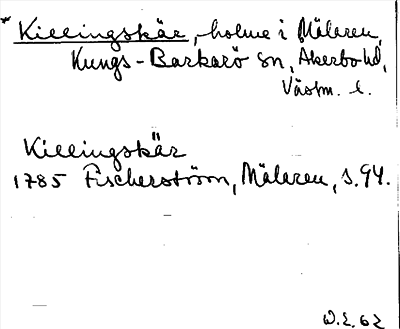 * Killingskär, holme i Mälaren,
Kungs-Barkarö sn, Åkerbo hd,
Västm. l.
Killingskär
1785 Fischerström, Mälaren, s. 94.
W.E. 62